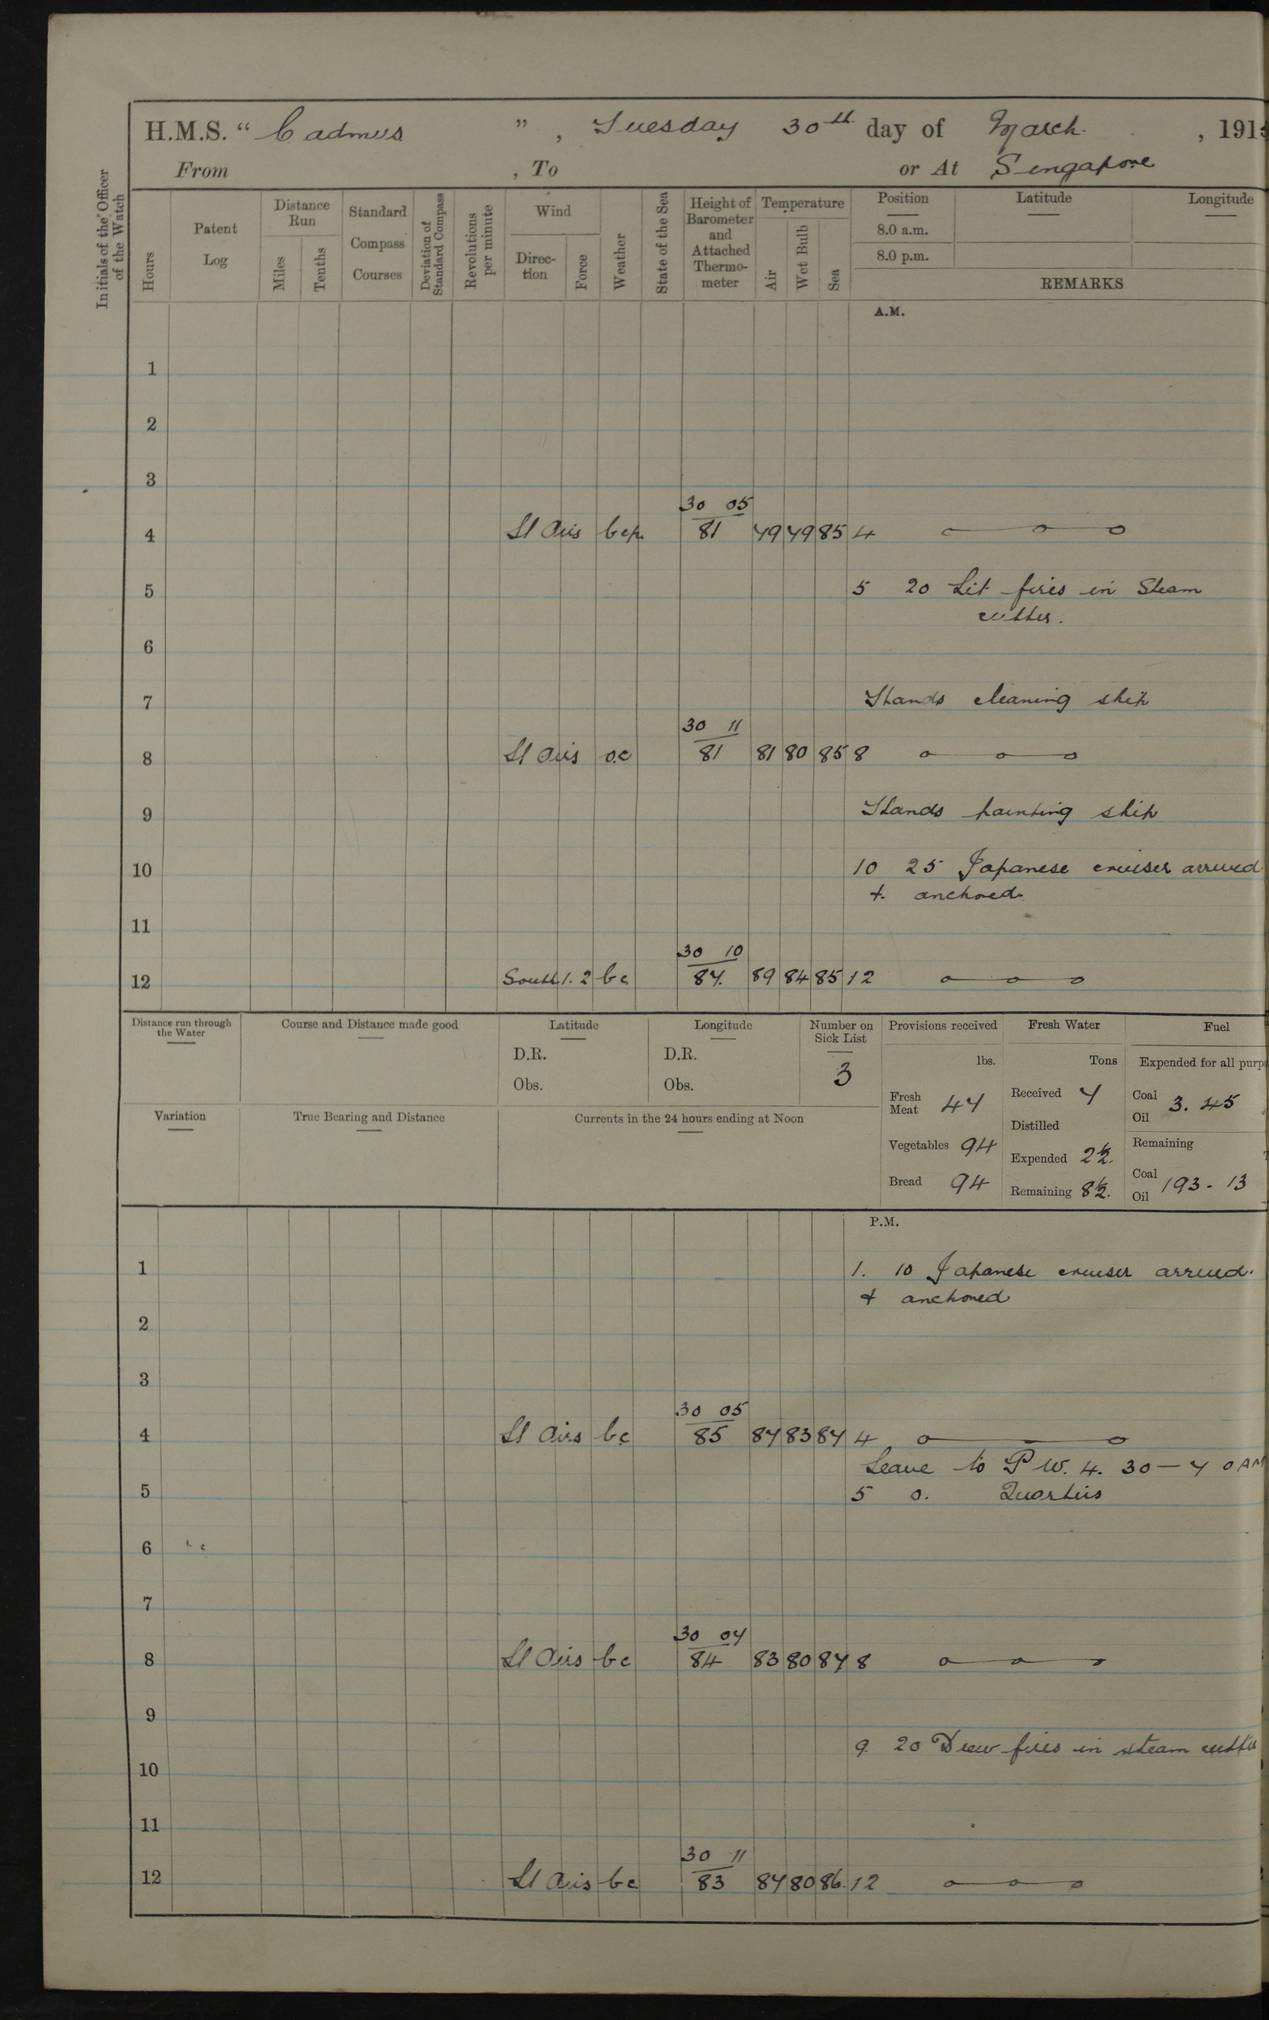 H.M.S. " Cadmus ", Tuesday 30th day of March. , 191
From , To or At Singapore
Initials of the Officer of the Watch
Hours
Patent Log
Distance Run
Miles
Tenths
Standard Compass Courses
Deviation of Standard Compass
Revolutions per minute
Wind
Direction
Force
Weather
State of the Sea
Height of Barometer and Attached Thermometer
Temperature
Air
Wet Bulb
Sea
Position Latitude Longitude
8.0 a.m.
8.0 p.m.
REMARKS
A.M.
1
2
3
30 05
4 Lt Airs bcp. 81 79 79 85 4
5 5 20 Lit fires in Steam
cutter.
6
7 Hands cleaning ship
30 11
8 Lt Airs o.c 81 81 80 85 8
9 Hands painting ship
10 10 25 Japanese cruiser arrived
+ anchored.
11
30 10
12 South 1.2 bc 87. 89 84 85 12
Distance run through the Water
Course and Distance made good
Latitude
D.R.
Obs.
Longitude
D.R.
Obs.
Number on Sick List
3
Provisions received
lbs.
Fresh Meat 47
Vegetables 94
Bread 94
Fresh Water
Tons
Received 7
Distilled
Expended 2½.
Remaining 8½.
Fuel
Expended for all purp
Coal
Oil 3. 45
Remaining
Coal
Oil 193 - 13
Variation
True Bearing and Distance
Currents in the 24 hours ending at Noon
P.M.
1 1. 10 Japanese cruiser arrived.
+ anchored
2
3
30 05
4 Lt Airs bc 85 87 83 87 4
Leave to P W. 4. 30 — 7 0 AM
5 5 0. Quarters
6
7
30 07
8 Lt Airs bc 84 83 80 87 8
9
9. 20 Drew fires in steam cutter
10
11
30 11
12 Lt Airs bc 83 87 80 86. 12